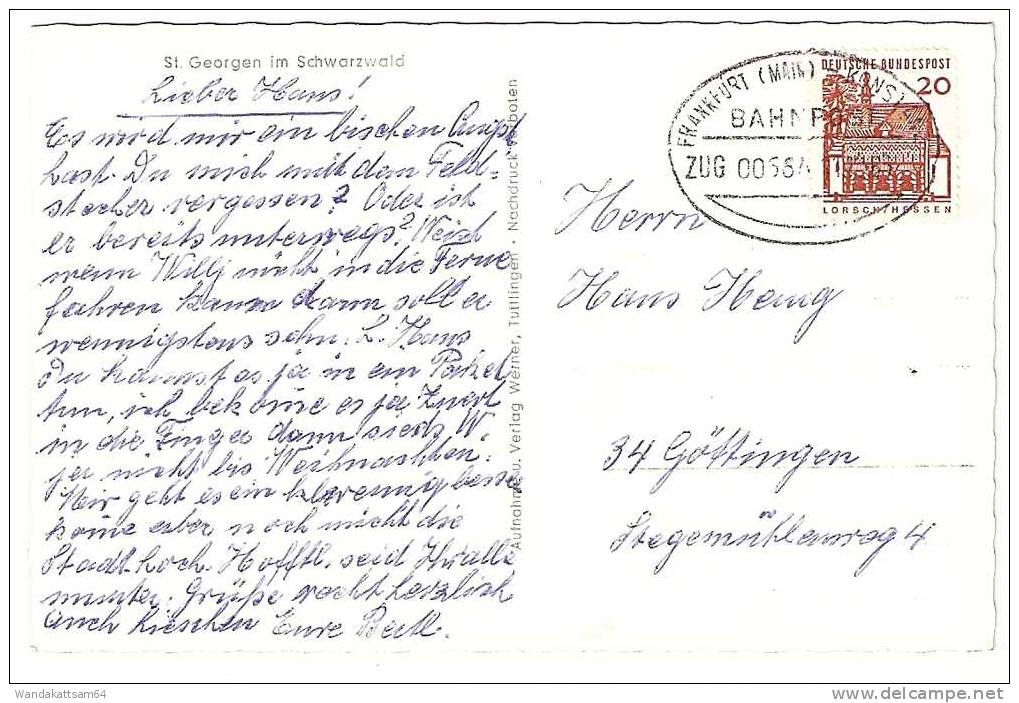 St. Georgen im Schwarzwald
Lieber Hans!
Es wird mir ein bischen Angst
hast Du mich mit dem Feld=
stecher vergessen? Oder ist
er bereits unterwegs? Weist
wenn Willj nicht in die Ferne
fahren kann dann soll er
wennigstens sehn. L. Hans
Du kannst es ja in ein Paket
tun, ich bekome es ja Zuerst
in die Finger dann siehts W.
ja nicht bis Weihnachten.
Mir geht es ein wennig besser
kome aber noch nicht die
Stadt hoch. Hofftl. seid Ihr alle
munter. Grüße recht herzlich
auch Lieschen Eure
Aufnahme u. Verlag Werner, Tuttlingen · Nachdruck verboten
FRANKFURT (MAIN) - KONSTANZ
BAHNPOST
ZUG
DEUTSCHE BUNDESPOST
20
LORSCH/HESSEN
Herrn
Hans
34 Göttingen
Stegemühlenweg 4
Wandakattsam64
delcampe.net